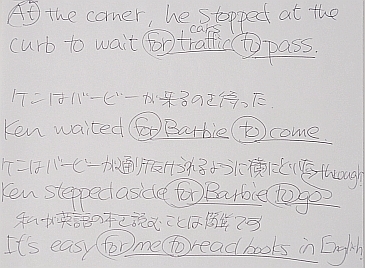 At the corner, he stopped at the
cars
curb to wait for traffic to pass.
ケンはバービーが来るのを待った.
Ken waited for Barbie to come.
ケンはバービーが通り抜けられるように横にどいた through
Ken stepped aside for Barbie to go
私が英語の本を読むことは簡単です
It's easy for me to read books in English